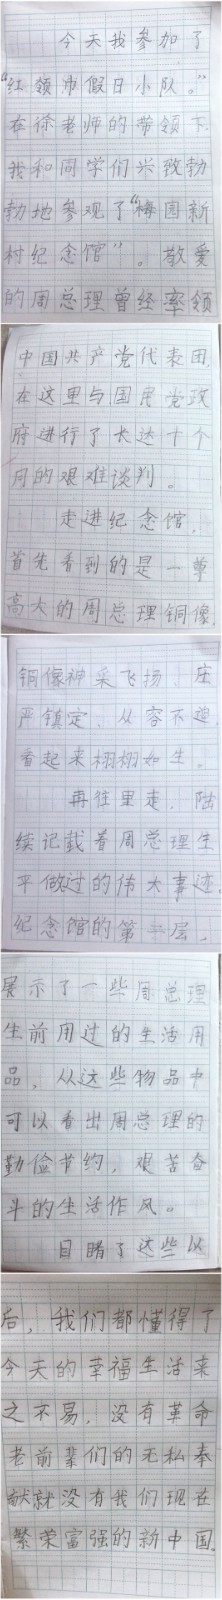 今天我参加了
“红领巾假日小队。”
在徐老师的带领下，
我和同学们兴致勃
勃地参观了“梅园新
村纪念馆”。敬爱
的周总理曾经率领
中国共产党代表团，
在这里与国民党政
府进行了长达十个
月的艰难谈判。
走进纪念馆，
首先看到的是一尊
高大的周总理铜像，
铜像神采飞扬、庄
严镇定、从容不迫，
看起来栩栩如生。
再往里走，陆
续记载着周总理生
平做过的伟大事迹，
纪念馆的第二层，
展示了一些周总理
生前用过的生活用
品，从这些物品中
可以看出周总理的
勤俭节约，艰苦奋
斗的生活作风。
目睹了这些以
后，我们都懂得了
今天的幸福生活来
之不易，没有革命
老前辈们的无私奉
献就没有我们现在
繁荣富强的新中国。